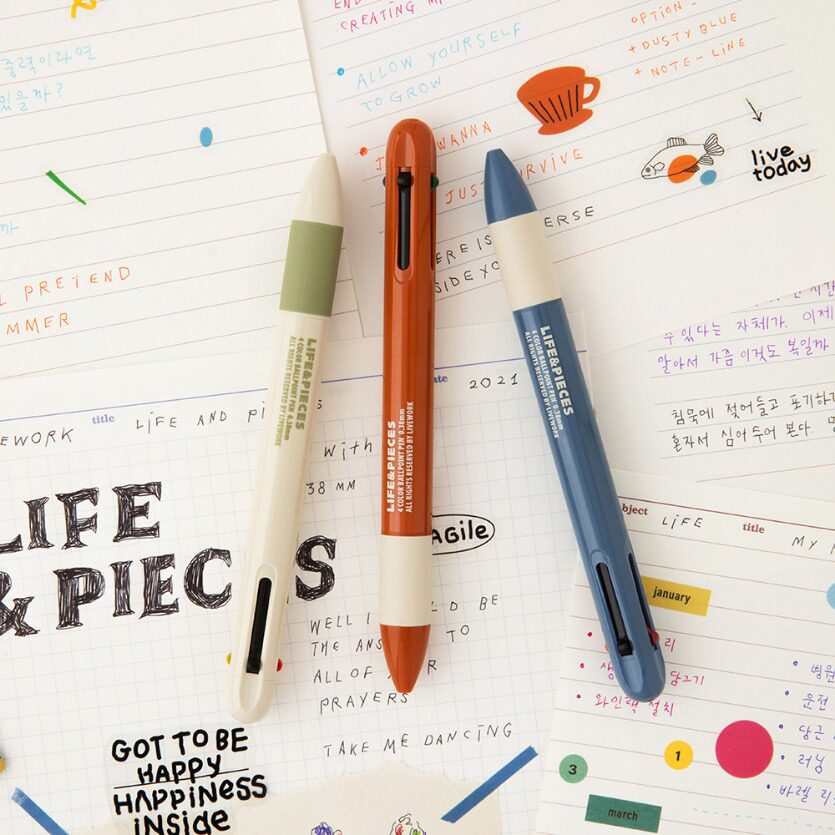 END
CREATING MY
ALLOW YOURSELF
TO GROW
WANNA
JUST SURVIVE
OPTION -
+ DUSTY BLUE
+ NOTE - LINE
live
today
중력이라면
있을까?
PRETEND
수 있다는 자체가. 이제
알아서 가끔 이것도 복일까
침묵에 젖어들고 포기하기
혼자서 심어두어 본다.
title LiFE AND
2021
With
38 MM
LIFE
& PIECES
AGILE
WELL I
BE
THE
TO
ALL OF
PRAYERS
TAKE ME DANCING
GOT TO BE
HAPPY
HAPPINESS
inside
LIFE&PIECES
4 COLOR BALLPOINT PEN 0.38mm
ALL RIGHTS RESERVED BY LIVEWORK
LIFE&PIECES
4 COLOR BALLPOINT PEN 0.38mm
ALL RIGHTS RESERVED BY LIVEWORK
LIFE&PIECES
4 COLOR BALLPOINT PEN 0.38mm
ALL RIGHTS RESERVED BY LIVEWORK
LiFE title MY
january
와인랙 설치
병원
운전
당근
러닝
바렐
1
3
march